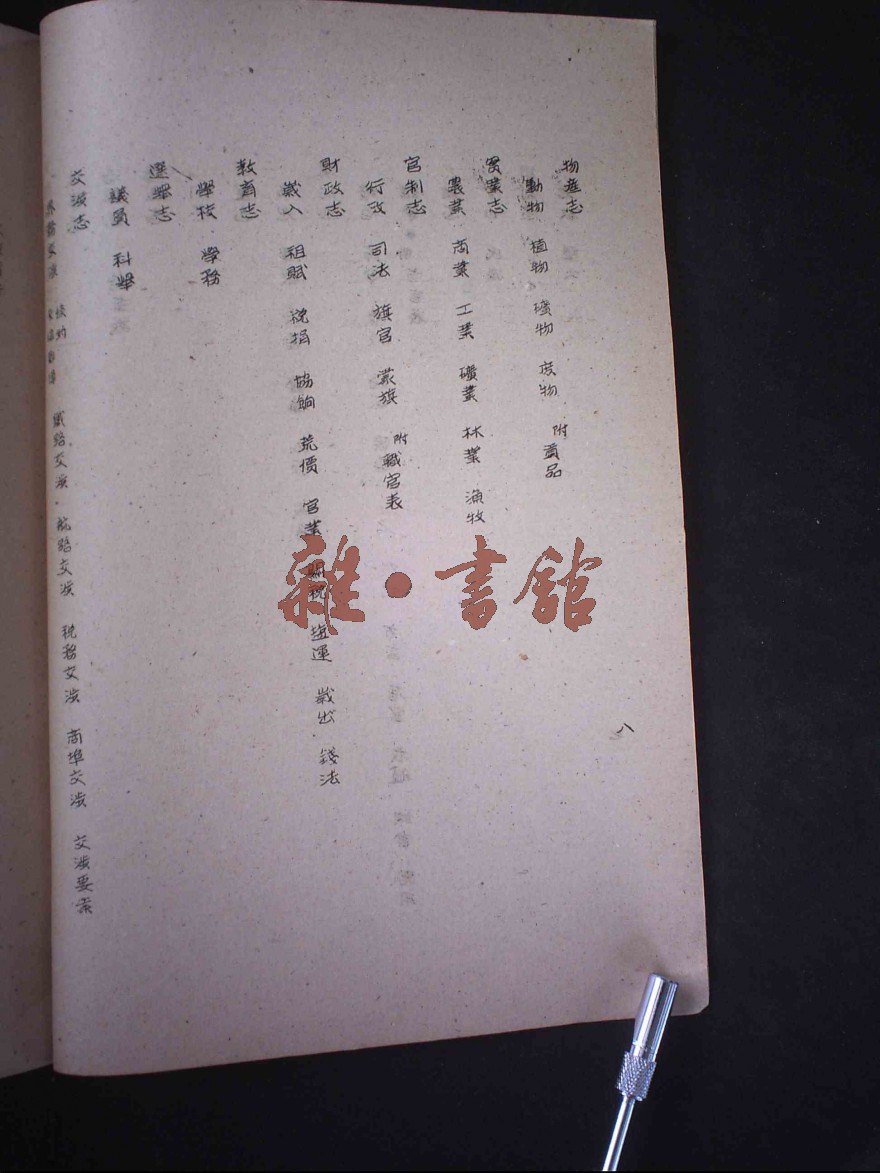 物產志
動物 植物 礦物 废物 附 貢品
实業志
農業 商業 工業 礦業 林業 漁牧
官制志
行政 司法 旗官 蒙旗 附 職官表
財政志
歲入 租賦 稅捐 協餉 荒價 官業 關稅 塩運 歲出 錢法
教育志
學校 學務
選舉志
議員 科舉
交涉志
鐵路交涉 航路交涉 稅務交涉 商埠交涉 交涉要案
八
雜·書館